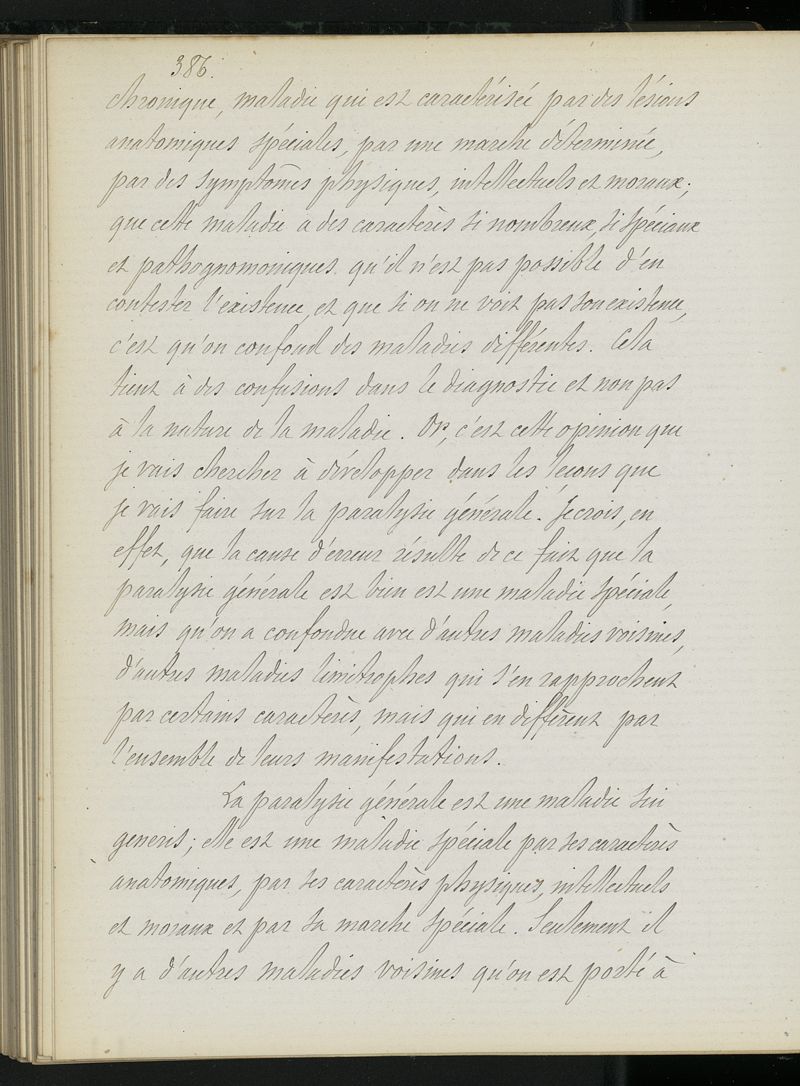 386.
chronique, maladie qui est caractérisée par des lésions
anatomiques spéciales, par une marche déterminée,
par des symptômes physiques, intellectuels et moraux;
que cette maladie a des caractères si nombreux, si spéciaux
et pathognomoniques qu'il n'est pas possible d'en
contester l'existence, et que si on ne voit pas son existence,
c'est qu'on confond des maladies différentes. Cela
tient à des confusions dans le diagnostic et non pas
à la nature de la maladie. Or, c'est cette opinion que
je vais chercher à développer dans les lecons que
je vais faire sur la paralysie générale. Je crois, en
effet, que la cause d'erreur résulte de ce fait que la
paralysie générale est bien est une maladie spéciale,
mais qu'on a confondue avec d'autres maladies voisines,
d'autres maladies limitrophes qui s'en rapprochent
par certains caractères, mais qui en diffèrent par
l'ensemble de leurs manifestations.
La paralysie générale est une maladie sui
generis; elle est une maladie spéciale par ses caractères
anatomiques, par ses caractères physiques, intellectuels
et moraux et par sa marche spéciale. Seulement il
y a d'autres maladies voisines qu'on est porté à